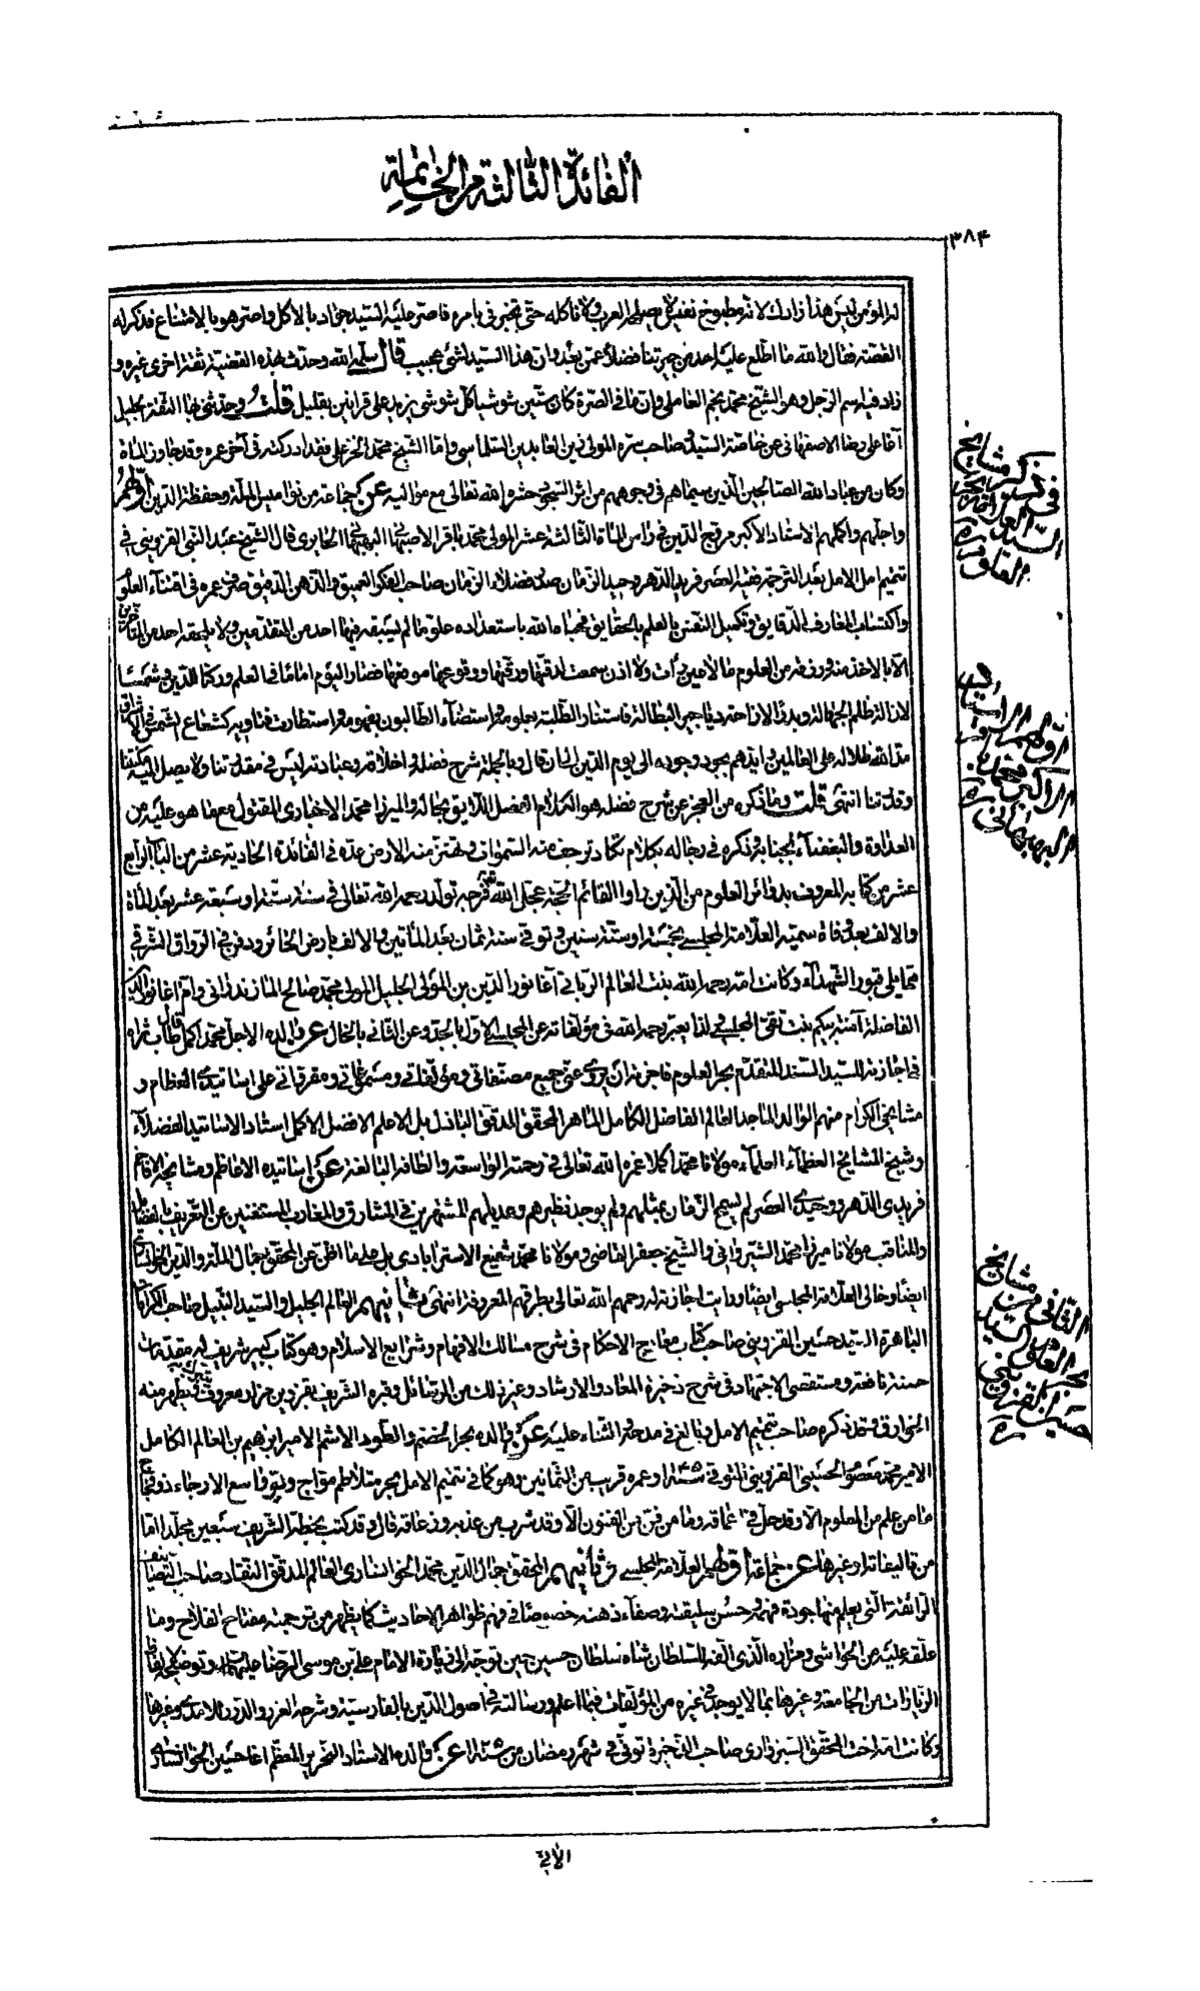 الفائدة الثالثة من الخاتمة
٣٨٤
له المؤمن ليس هذا زادك لانه مطبوخ نفيس لا يصلحه العرب ولا ناكله حتى تخبرني بامره فاصر عليه السيد جواد بالاكل واصر هو بالامتناع فذكر له
القصة فقال والله ما اطلع عليه احد من جيرتنا فضلا عمن بعد وان هذا السيد لشئ عجيب قال سلمه الله وحدث بهذه القضية ثقة اخرى غيره و
زاد فيه اسم الرجل وهو الشيخ محمد نجم العاملي وان ما في الصرة كان ستين شوشيا كل شوشي يزيد على قرانين بقليل قلت وحدثني بها الثقة الجليل
آقا على رضا الاصفهاني عن خاصة السيد وصاحب سره المولى زين العابدين السلماسي واما الشيخ محمد الحر على فقد ادركته في آخر عمره وقد جاوز المائة
وكان من عباد الله الصالحين الذين سيماهم في وجوههم من اثر السجود حشره الله تعالى مع مواليه عن جماعة من نواميس الملة وحفظة الدين اولهم
واجلهم واكملهم الاستاد الاكبر مروج الدين في راس المائة الثالثة عشر المولى محمد باقر الاصبهاني البهبهاني الحايرى قال الشيخ عبد النبي القزويني في
تتميم امل الامل بعد الترجمة فقيه العصر فريد الدهر وحيد الزمان صدر فضلاء الزمان صاحب الفكر العميق والذهن الدقيق صرف عمره في اقتناء العلوم
واكتساب المعارف الدقايق وتكميل النفس بالعلم بالحقايق فحباه الله باستعداده علوما لم يسبقه فيها احد من المتقدمين ولا يلحقه احد من المتاخرين
الا بالاخذ منه ورزقه من العلوم ما لا عين رأت ولا اذن سمعت لدقتها ورقتها ووقوعها موقعها فصار اليوم اماما في العلم وركنا للدين وشمسا
لازالة ظلم الجهالة وبدرا لازاحة دياجير البطالة فاستنار الطلبة بعلومه واستضاء الطالبون بفهومه واستطارت فتاويه كشعاع الشمس في الاشراق
مد الله ظلاله على العالمين وايدهم بجود وجوده الى يوم الدين الى ان قال وبالجملة شرح فضله واخلاقه وعباداته ليس في مقدرتنا ولا يصل اليه مكنتنا
وقدرتنا انتهى قلت وما ذكره من العجز عن شرح فضله هو الكلام الفصل اللايق بحاله والميرزا محمد الاخبارى المقتول مع ما هو عليه من
العداوة والبغضاء لجنابه وذكره في رجاله بكلام تكاد ترجف منه السموات وتهتز منه الارض عده في الفائدة الحادية عشر من الباب الرابع
عشر من كتابه المعروف بدوائر العلوم من الذين راوا القائم الحجة عجل الله فرجه تولد رحمه الله تعالى في سنة ستة او سبعة عشر بعد المائة
والالف بعد وفاة سميه العلامة المجلسي بخمسة او ستة سنين وتوفى سنة ثمان بعد المأتين والالف بارض الحائر ودفن في الرواق الشرقي
مما يلى قبور الشهداء وكانت امه رحمه الله بنت العالم الرباني آغا نور الدين بن المولى الجليل المولى محمد صالح المازندراني وام آغا نور الدين
الفاضلة آمنة بيكم بنت تقى المجلسي ولذا يعبر رحمه الله في مؤلفاته عن المجلسي الاول بالجد وعن الثاني بالخال عن والده الاجل محمد اكمل قال طاب ثراه
في اجازته للسيد السند المتقدم بحر العلوم فاجزته ان يروى عني جميع مصنفاتي ومؤلفاتي ومسموعاتي ومقرواتي على اساتيدى العظام و
مشايخي الكرام منهم الوالد الماجد العالم الفاضل الكامل الماهر المحقق المدقق الباذل بل الاعلم الافضل الاكمل استاد الاساتيد الفضلاء
وشيخ المشايخ العظماء العلماء مولانا محمد اكمل غمره الله تعالى في رحمته الواسعة والطافه البالغة عن اساتيده الاعاظم ومشايخه الافاخم
فريدى الدهر ووحيدى العصر لم يسمح الزمان بمثلهم ولم يوجد نظيرهم وعديلهم المشتهرين في المشارق والمغارب المستغنين عن التعريف بالفضايل
والمناقب مولانا ميرزا محمد الشيرواني والشيخ جعفر القاضي ومولانا محمد شفيع الاسترابادى بل على ما اظن عن المحقق جمال الملة والدين الخوانسارى
ايضا وخالى العلامة المجلسي ايضا ورايت اجازته له رحمهم الله تعالى بطرقهم المعروفة انتهى وثانيهم العالم الجليل والسيد النبيل صاحب الكرامات
الباهرة السيد حسين القزويني صاحب كتاب معارج الاحكام في شرح مسالك الافهام وشرايع الاسلام وهو كتاب كبير شريف له مقدمات
حسنة نافعة ومستقصى الاجتهاد في شرح ذخيرة المعاد والارشاد وغير ذلك من الرسائل وقبره الشريف بقزوين مزار معروف يتبرك به تظهر منه
الخوارق وقد ذكره صاحب تتميم الامل وبالغ في مدحه والثناء عليه عن والده بحر الخضم والطود الاشم الامير ابرهيم بن العالم الكامل
الامير محمد معصوم الحسيني القزويني المتوفى سنة ١١٤٥ او عمره قريب من الثمانين وهو كما في تتميم الامل بحر متلاطم مواج وبر واسع الارجاء ذو فجاج
ما من علم من العلوم الا وقد حل في اعماقه وما من فن من الفنون الا وقد شرب من عذبه وزعاقه قال وقد كتب بخطه الشريف سبعين مجلدا اما
من تاليفاته او غيرها عن جماعة اولهم العلامة المجلسي وثانيهم المحقق جمال الدين محمد الخوانسارى العالم المدقق النقاد صاحب التصانيف
الرائقة التي يعلم منها جودة فهمه وحسن سليقته وصفاء ذهنه خصوصا في فهم ظواهر الاحاديث كما يظهر من ترجمته مفتاح الفلاح وما
علقه عليه من الحواشي ومزاره الذي الفه للسلطان شاه سلطان حسين حين توجه الى زيارة الامام علي بن موسى الرضا عليهما السلام وتوضيحه لالفاظ
الزيارات من الجامعة وغيرها بما لا يوجد في غيره من المؤلفات فيما اعلم ورسالته في اصول الدين بالفارسية وشرحه الغرر والدرر للآمدى وغيرها
وكانت امه اخت المحقق السبزوارى صاحب الذخيرة توفى في شهر رمضان من سنة ١١٢٥ عن والده الاستاد النحرير المعظم اغا حسين الخوانسارى
في ذكر مشايخ السيد العلامة بحر العلوم ره
اولهم الاستاد الاكبر محمد باقر البهبهاني ره
الثاني من مشايخ بحر العلوم السيد حسين القزويني ره